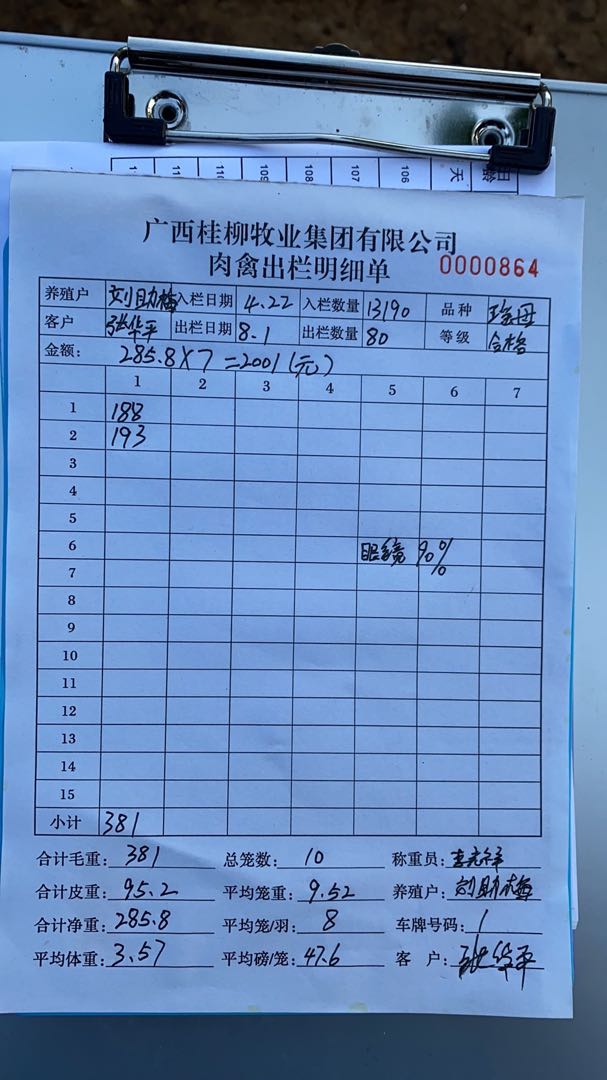 日龄 天 106 107 108 109 110 11
广西桂柳牧业集团有限公司
肉禽出栏明细单 0000864
养殖户 刘助梅 入栏日期 4.22 入栏数量 13190 品种 瑶母
客户 张华平 出栏日期 8.1 出栏数量 80 等级 合格
金额: 285.8×7=2001(元)
1 2 3 4 5 6 7
1 188
2 193
3
4
5
6 眼镜 90%
7
8
9
10
11
12
13
14
15
小计 381
合计毛重: 381 总笼数: 10 称重员:
合计皮重: 95.2 平均笼重: 9.52 养殖户: 刘助梅
合计净重: 285.8 平均笼/羽: 8 车牌号码: 1
平均体重: 3.57 平均磅/笼: 47.6 客户: 张华平